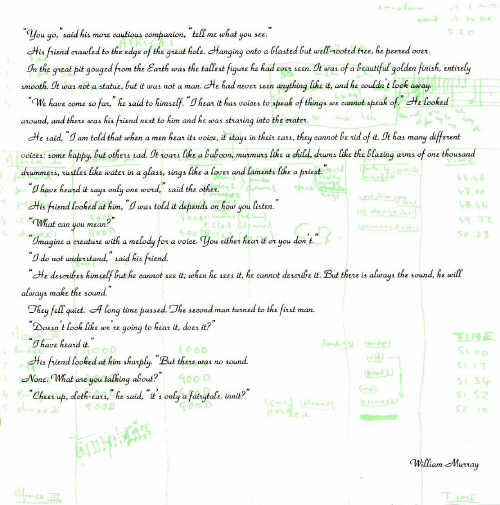 "You go," said his more cautious companion, "tell me what you see."
His friend crawled to the edge of the great hole. Hanging onto a blasted but well-rooted tree, he peered over.
In the great pit gouged from the Earth was the tallest figure he had ever seen. It was of a beautiful golden finish, entirely
smooth. It was not a statue, but it was not a man. He had never seen anything like it, and he couldn't look away.
"We have come so far," he said to himself. "I hear it has voices to speak of things we cannot speak of." He looked
around, and there was his friend next to him and he was straining into the crater.
He said, "I am told that when a men hear its voice, it stays in their ears, they cannot be rid of it. It has many different
voices: some happy, but others sad. It roars like a baboon, murmurs like a child, drums like the blazing arms of one thousand
drummers, rustles like water in a glass, sings like a lover and laments like a priest."
"I have heard it says only one word," said the other.
His friend looked at him, "I was told it depends on how you listen."
"What can you mean?"
"Imagine a creature with a melody for a voice. You either hear it or you don't."
"I do not understand," said his friend.
"He describes himself but he cannot see it; when he sees it, he cannot describe it. But there is always the sound, he will
always make the sound."
They fell quiet. A long time passed. The second man turned to the first man.
"Doesn't look like we're going to hear it, does it?"
"I have heard it."
His friend looked at him sharply. "But there was no sound.
None. What are you talking about?"
"Cheer up, cloth-ears," he said, "it's only a fairytale, innit?"
William Murray
TIME
51.00
51.17
51.34
51.52
TIME